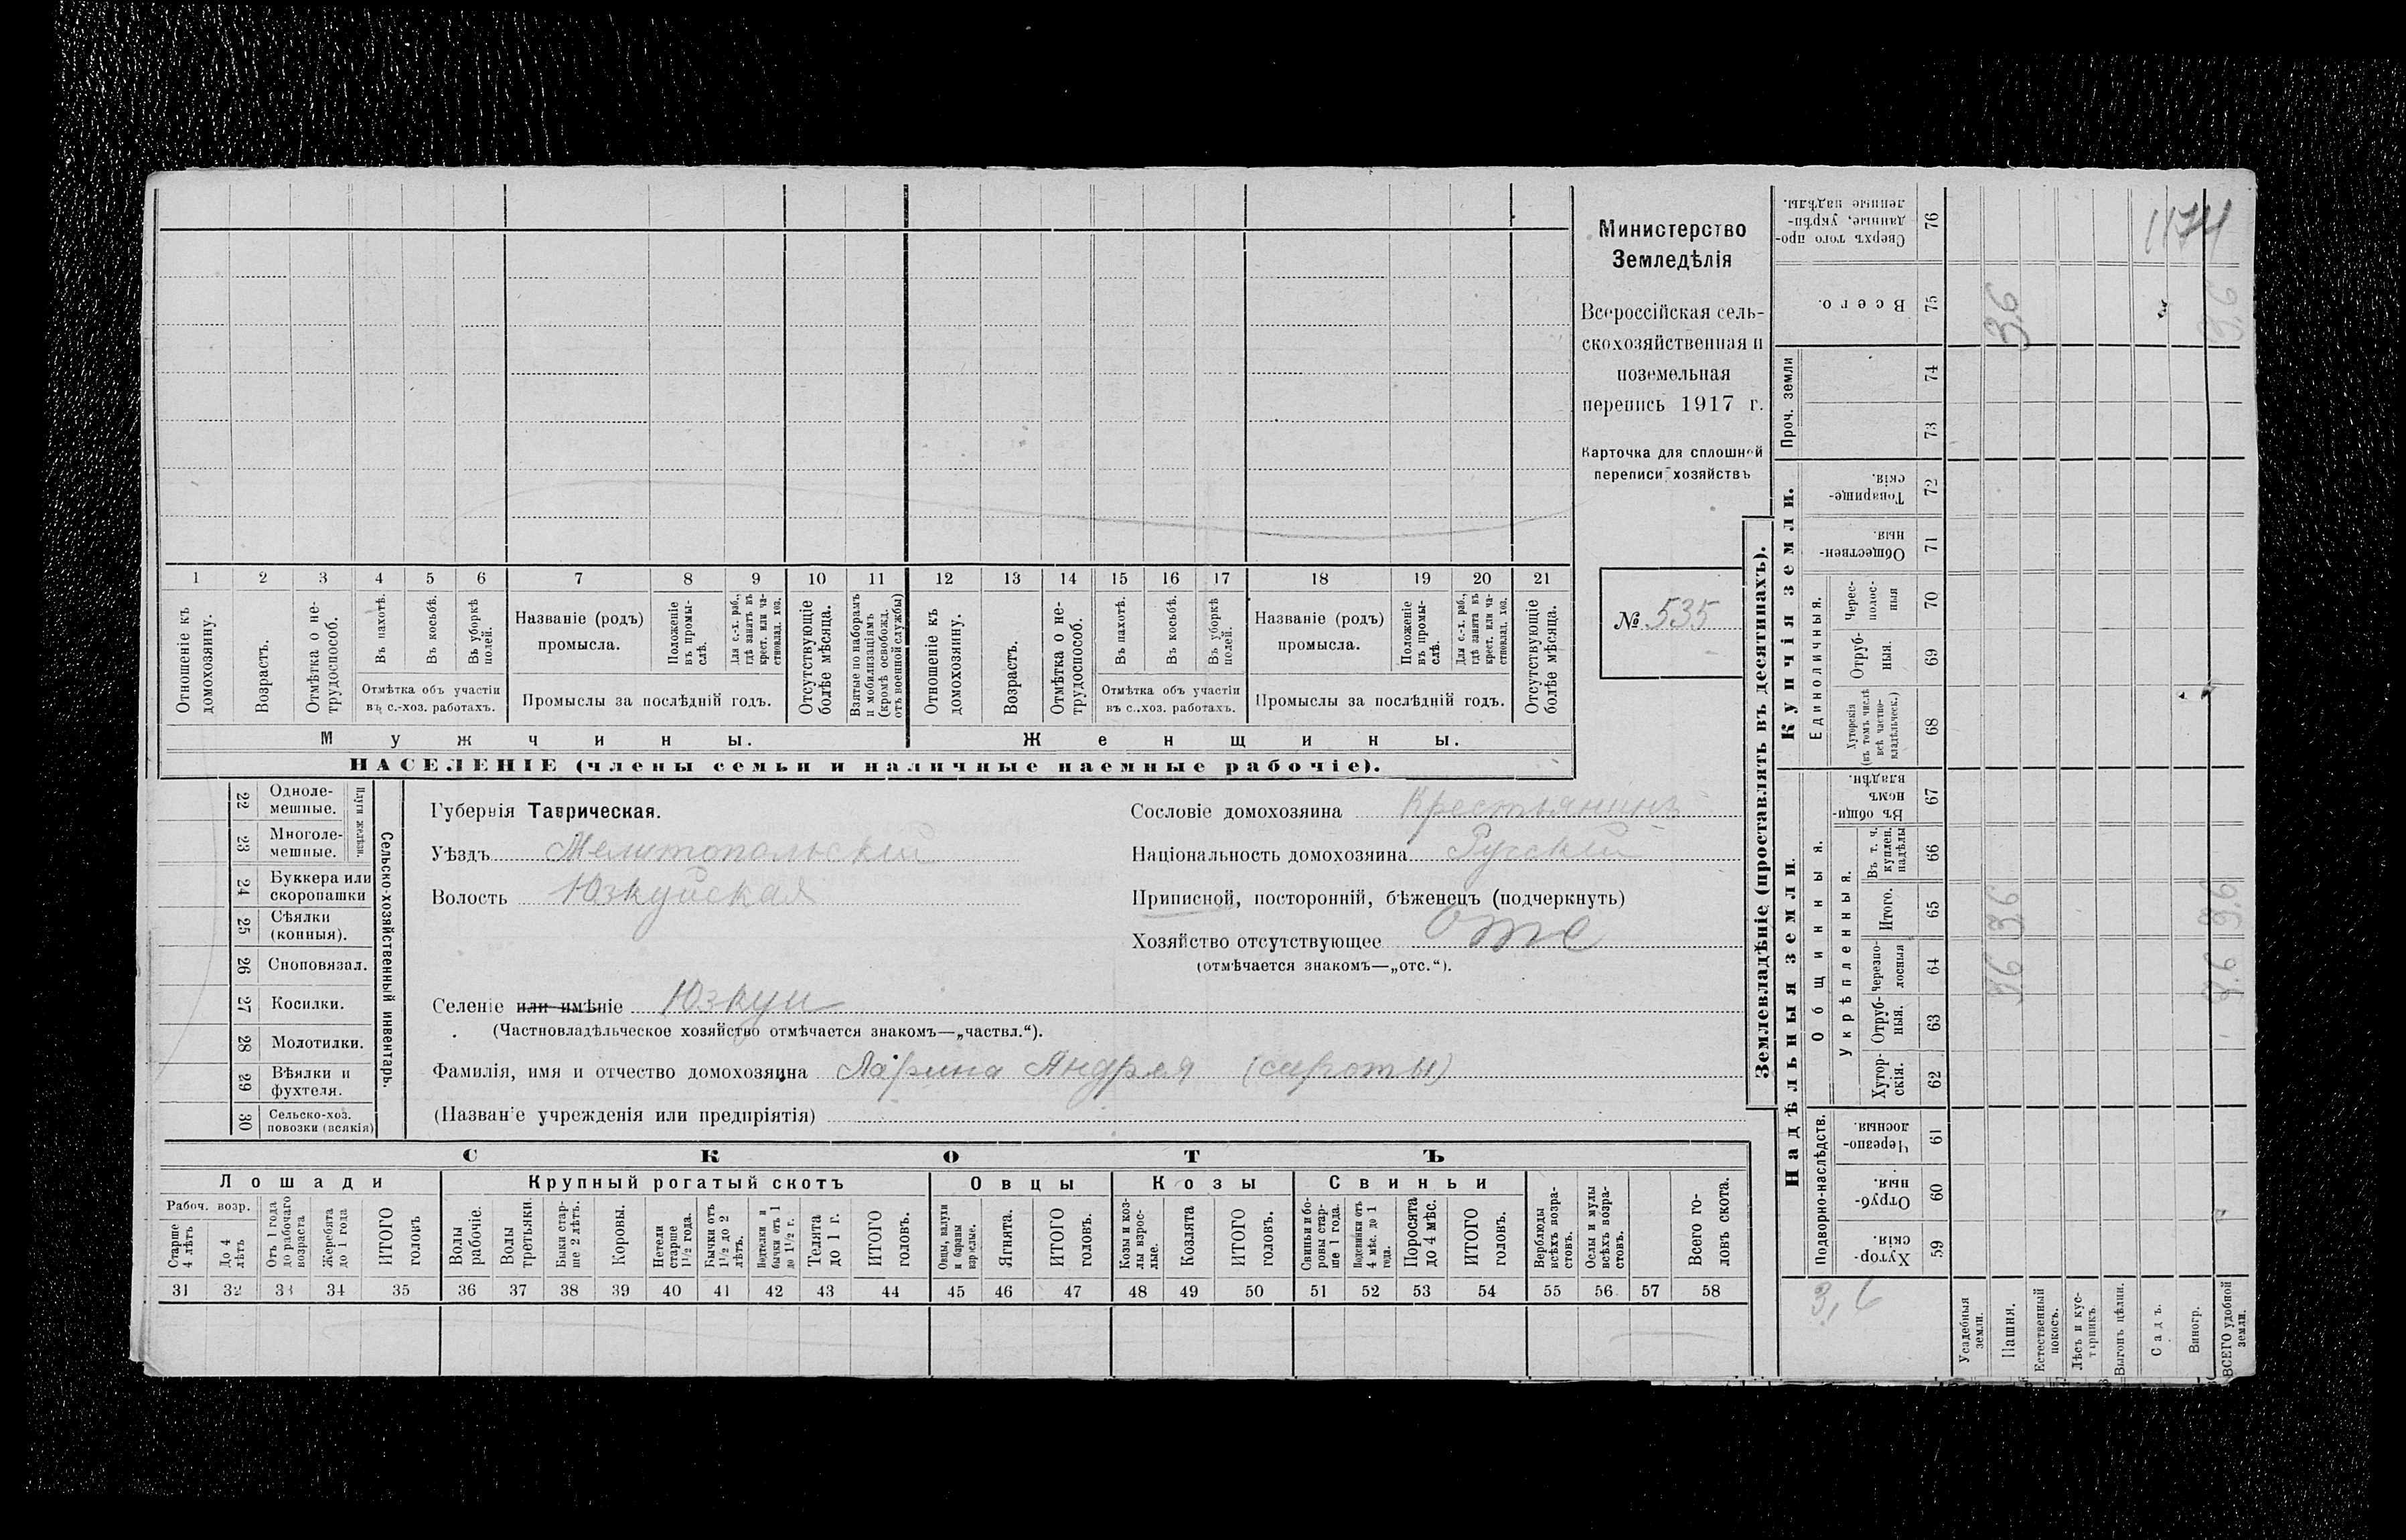 Министерство
Земледѣлія
Всероссійская сель-
скохозяйственная и
поземельная
перепись 1917 г.
Карточка для сплошной
переписи хозяйствъ
№ 535
1 2 3 4 5 6 7 8 9 10 11 12 13 14 15 16 17 18 19 20 21
Отношеніе къ домохозяину.
Возрастъ.
Отмѣтка о не-трудоспособ.
Въ пахотѣ.
Въ косьбѣ.
Въ уборкѣ полей.
Отмѣтка объ участіи
въ с.-хоз. работахъ.
Названіе (родъ)
промысла.
Положеніе въ промы-слѣ.
Для с.-х. раб., гдѣ занятъ въ крест. или ча-стновлад. хоз.
Промыслы за послѣдній годъ.
Отсутствующіе болѣе мѣсяца.
Взятые по наборамъ и мобилизаціямъ (кромѣ освобожд. отъ военной службы)
Отношеніе къ домохозяину.
Возрастъ.
Отмѣтка о не-трудоспособ.
Въ пахотѣ.
Въ косьбѣ.
Въ уборкѣ полей.
Отмѣтка объ участіи
въ с.-хоз. работахъ.
Названіе (родъ)
промысла.
Положеніе въ промы-слѣ.
Для с.-х. раб., гдѣ занята въ крест. или ча-стновлад. хоз.
Промыслы за послѣдній годъ.
Отсутствующіе болѣе мѣсяца.
Мужчины. Женщины.
НАСЕЛЕНІЕ (члены семьи и наличные наемные рабочіе).
Сельско-хозяйственный инвентарь.
Плуги желѣзн.
22 Одноле-мешные.
23 Многоле-мешные.
24 Буккера или скоропашки
25 Сѣялки (конныя).
26 Сноповязал.
27 Косилки.
28 Молотилки.
29 Вѣялки и фухтеля.
30 Сельско-хоз. повозки (всякія)
Губернія Таврическая.
Уѣздъ Мелитопольскій
Волость Юзкуйская
Селеніе или имѣніе Юзкуи
(Частновладѣльческое хозяйство отмѣчается знакомъ—„частвл.“).
Фамилія, имя и отчество домохозяина Ларина Андрея (сироты)
(Названіе учрежденія или предпріятія)
Сословіе домохозяина Крестьянинъ
Національность домохозяина Русскій
Приписной, посторонній, бѣженецъ (подчеркнуть)
Хозяйство отсутствующее отс
(отмѣчается знакомъ—„отс.“).
СКОТЪ
Лошади Крупный рогатый скотъ Овцы Козы Свиньи
Рабоч. возр.
Старше 4 лѣтъ
До 4 лѣтъ
Отъ 1 года до рабочаго возраста
Жеребята до 1 года
ИТОГО головъ
Волы рабочіе.
Волы третьяки.
Быки стар-ше 2 лѣтъ.
Коровы.
Нетели старше 1 1/2 года.
Бычки отъ 1 1/2 до 2 лѣтъ.
бычки отъ 1 до 1 1/2 г.
Телята до 1 г.
ИТОГО головъ.
Овцы, валухи и бараны взрослые.
Ягнята.
ИТОГО головъ.
Козы и коз-лы взрос-лые.
Козлята
ИТОГО головъ.
Свиньи и бо-ровы стар-ше 1 года.
Подсвинки отъ 4 мѣс. до 1 года.
Поросята до 4 мѣс.
ИТОГО головъ.
Верблюды всѣхъ возра-стовъ.
Ослы и мулы всѣхъ возра-стовъ.
Всего го-ловъ скота.
31 32 33 34 35 36 37 38 39 40 41 42 43 44 45 46 47 48 49 50 51 52 53 54 55 56 57 58
Землевладѣніе (проставлять въ десятинахъ).
Надѣльныя земли.
Купчія земли.
Подворно-наслѣдств.
Общинныя.
Укрѣпленныя.
Единоличныя.
Проч. земли
Хутор-скія. 59
Отруб-ныя. 60
Черезпо-лосныя. 61
Хутор-скія. 62
Отруб-ныя. 63
Черезпо-лосныя 64
Итого. 65
Въ т. ч. куплен. надѣлы 66
Въ общи-номъ владѣн. 67
Хуторскія (въ томъ числѣ всѣ частно-владѣльческ.) 68
Отруб-ныя. 69
Черес-полос-ныя 70
Обществен-ныя. 71
Товарище-скія. 72
73
74
Всего. 75
Сверхъ того про-данные, укрѣп-ленные надѣлы. 76
Усадебныя земли.
Пашня.
Естественный покосъ.
Лѣсъ и кус-тарникъ
Выгонъ цѣлин.
Садъ.
Виногр.
ВСЕГО удобной земли.
3,6
3,6 3,6 3,6
3,6 3,6 3,6
1174